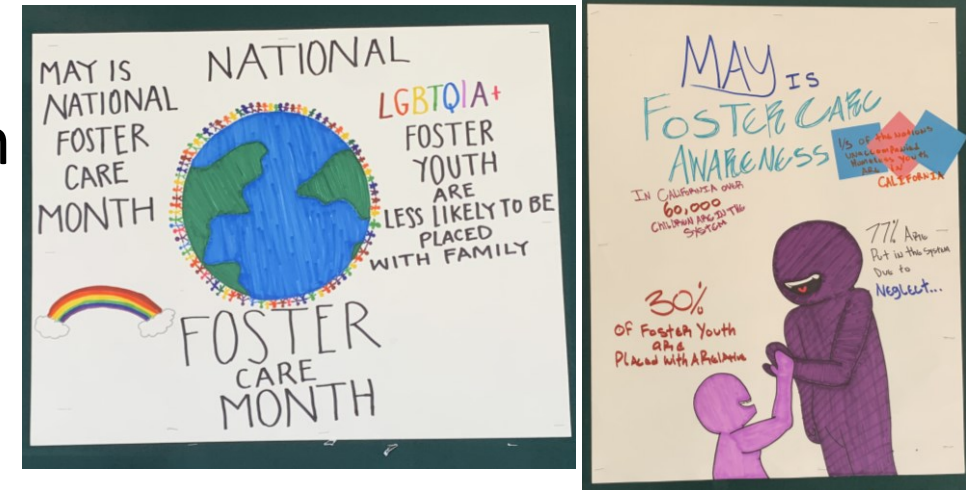 MAY IS
NATIONAL
FOSTER
CARE
MONTH
NATIONAL
LGBTQIA+
FOSTER
YOUTH
ARE
LESS LIKELY TO BE
PLACED
WITH FAMILY
FOSTER
CARE
MONTH
MAY IS
FOSTER CARE
AWARENESS
1/3 of the nations
unaccompanied
Homeless youth
are in
CALIFORNIA
IN CALIFORNIA OVER
60,000
CHILDREN ARE IN THE
SYSTEM
77% Are
Put in the System
Due to
Neglect...
30%
OF Foster Youth
are
Placed with A Relative